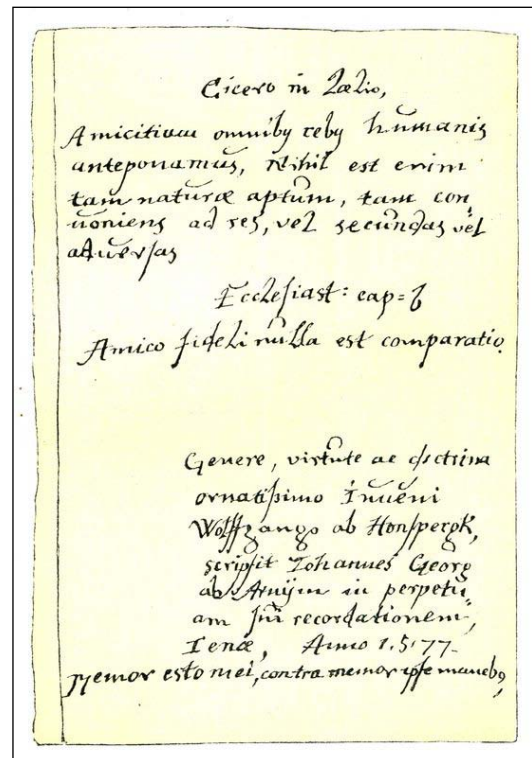 Cicero in Lælio,
Amicitiam omnibꝰ rebꝰ humanis
anteponamus, Nihil est enim
tam naturæ aptum, tam con
uoniens ad res, vel secundas vel
aduersas
Ecclesiast: cap= 6
Amico fideli nulla est comparatio.
Genere, virtute ac doctrina
ornatißimo Iuueni
Wolffgango ab Honspergk,
scripsit Iohannes Georg
ab Arnijm in perpetu„
am sui recordationem,
Ienæ, Anno 1.5.77.
Memor esto mei, contra memor ipse manebo,